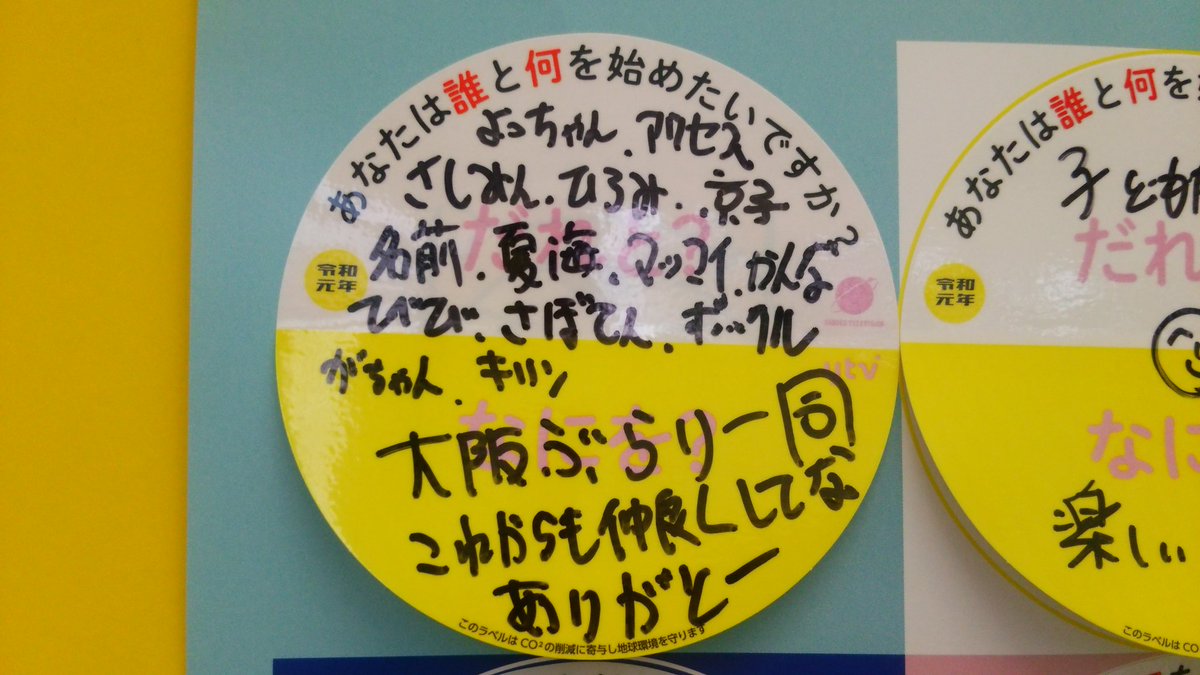 あなたは誰と何を始めたいですか?
よっちゃん、アクセス
さしみん、ひろみ、京子
だれと?
名前、夏海、マッコイ、かんな
令和
元年
びびび、さぼてん、ボックル
utv
がちゃん、キリン
なにを?
大阪ぶらり一同
これからも仲良くしてな
ありがとー
このラベルはCO²の削減に寄与し地球環境を守ります
あなたは誰と何を
子ども
だれ
令和
元年
なに
楽しい
このラベルはCO